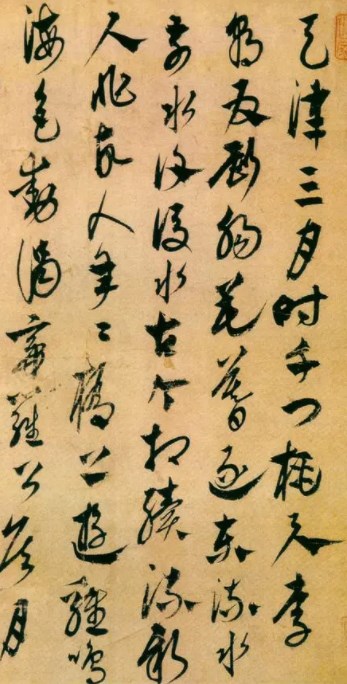 天津三月時千門桃與李
朝為斷腸花暮逐東流水
前水復後水古今相續流新
人非故人年〻橋上遊雞鳴
海色動謁帝羅公侯月